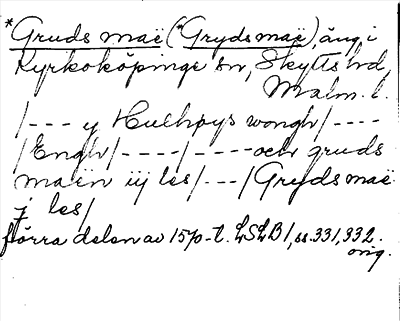 *Gruds maë (*Gryds maë), äng i
Kyrkoköpinge sn, Skytts hd,
Malm. l.
/--- y Hulhøys wongh/----
/Engh/----/----och gruds
maën iij les/---/Gryds maë
j les/
förra delen av 1570-t. LSLB 1, ss. 331, 332.
orig.